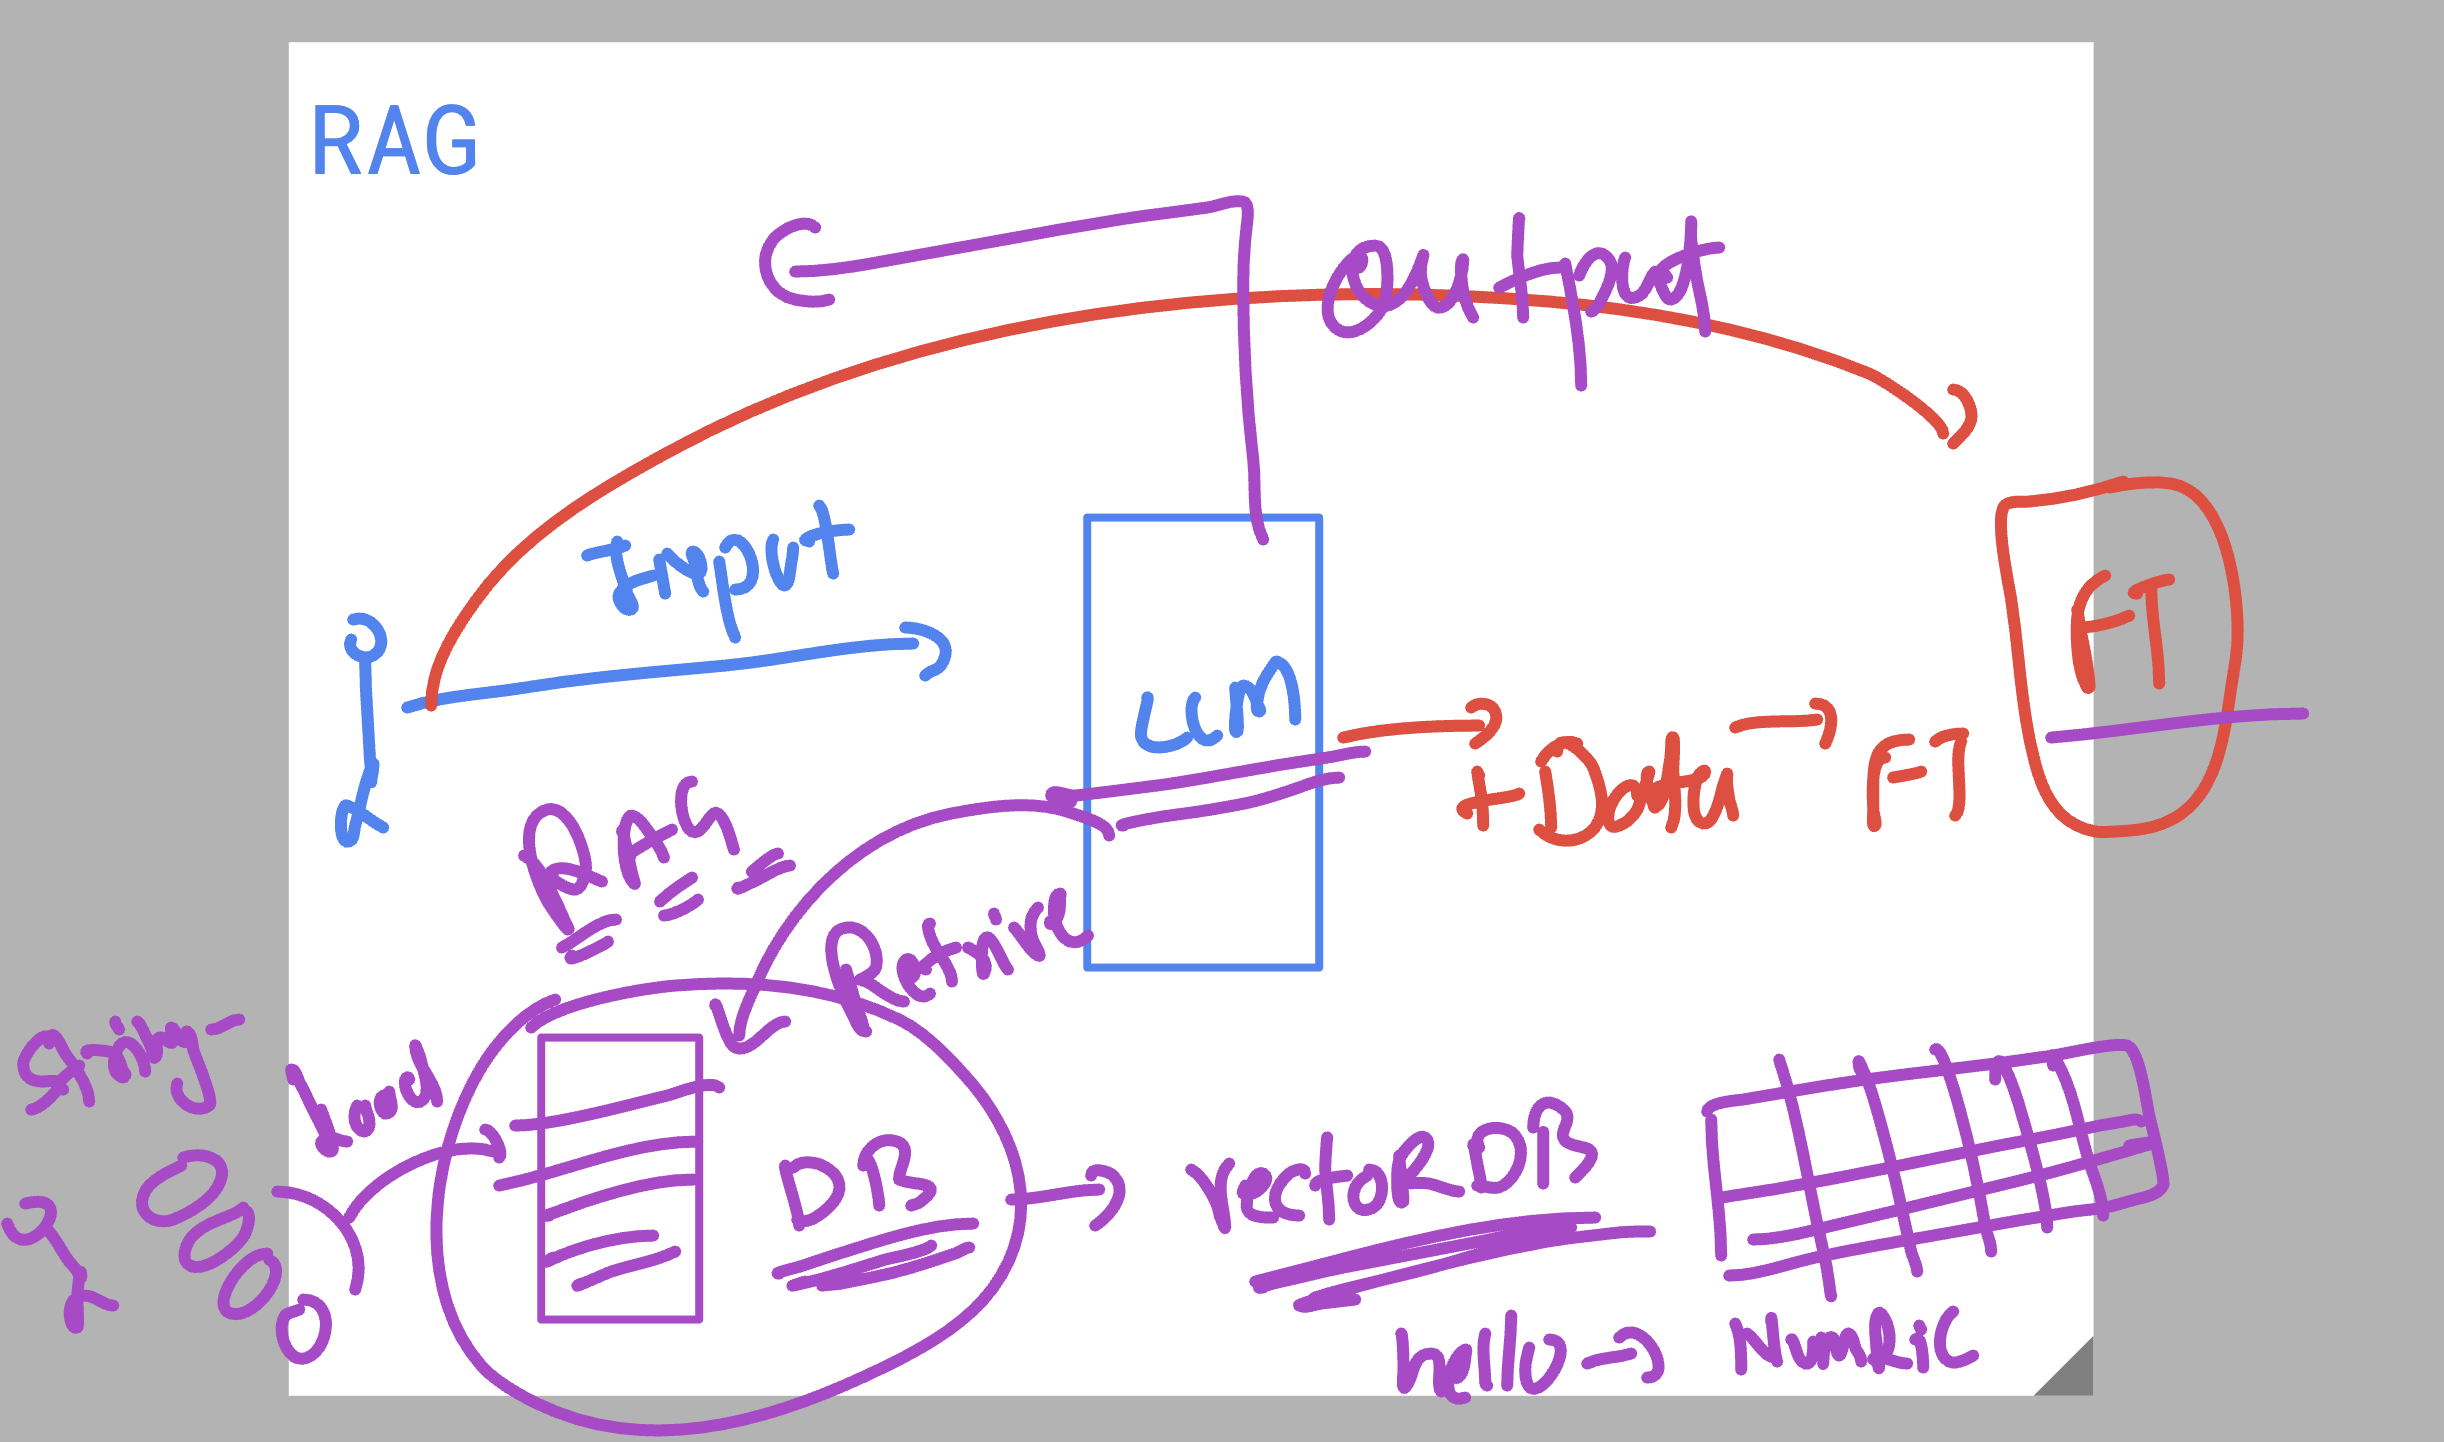 RAG
output
Input
LLM
FT
+Data → FT
RAG
Retrive
String
Load
DB → VectoR DB
hello → NumRic